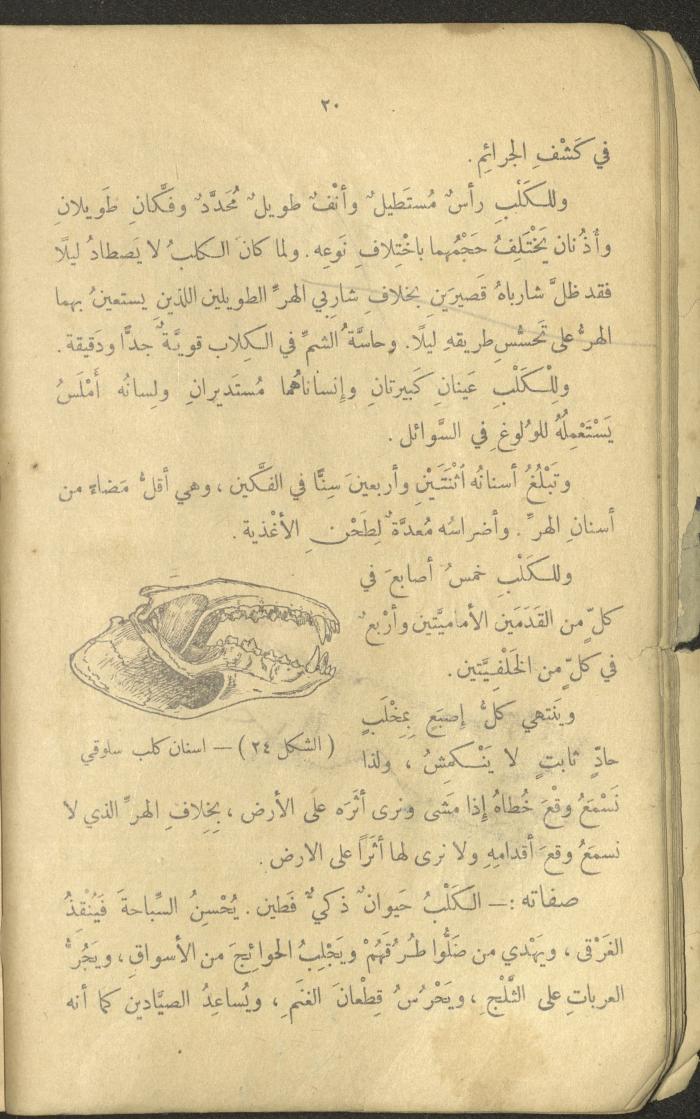 ٢٠
في كَشْفِ الجرائمِ.
وللـكَلْبِ رأسٌ مُستَطيلٌ وأنْفٌ طويلٌ مُحَدَّدٌ وفَكَّانِ طَويلانِ
وأُذُنان يَخْتَلِفُ حَجْمُهما باخْتِلافِ نَوعِه. ولما كان الـكلبُ لا يَصطادُ ليلًا
فقد ظلَّ شارباهُ قَصيرَينِ بخلافِ شاربَي الهرِّ الطويلين اللذينِ يستعينُ بهما
الهرُّ على تَحسُّسِ طريقهِ ليلًا. وحاسَّةُ الشمِّ في الـكِلاب قويَّةٌ جدًّا ودَقيقة.
ولِلْـكَلْبِ عَينانِ كَبيرتانِ وإنساناهُما مُستَديرانِ ولِسانُه أمْلَسُ
يَسْتَعْمِلُهُ للوُلوغِ في السَّوائل.
وتَبْلُغُ أسنانُه اْثْنَتَـيْنِ وأربعينَ سِنًّا في الفَكَّين، وهي أقلُّ مَضاءً من
أسنانِ الهرِّ. وأضراسُه مُعدَّةٌ لِطَحْنِ الأغْذية.
وللـكَلْبِ خمسُ أصابعَ في
كلٍّ من القَدَمَين الأماميَّتين وأرْبعٌ
في كلٍّ من الخَلْفـيَّتين.
وينَتهي كلُّ إصبَعٍ بِمِخْلَبٍ
حادٍّ ثابتٍ لا يَنْـكمِشُ، ولذا
(الشكل ٢٤) — اسنان كلب سلوقي
نَسْمَعُ وقْعَ خُطاهُ إذا مَشى ونرى أثَرَه على الأرض، بِخِلافِ الهرِّ الذي لا
نسمَعُ وقعَ أقدامهِ ولا نرى لها أثَرًا على الارض.
صفاته :— الـكَلْبُ حَيوانٌ ذكيٌّ فَطين. يُحْسِنُ السِّباحةَ فَيُنْقِذُ
الغَرْقى، ويَهْدي من ضَلُّوا طُـرُقَهُمْ ويَجْلِبُ الحوائجَ من الأسواقِ، ويَجُرُّ
العرباتِ على الثَّلْجِ، ويَحْرُسُ قِطْعانَ الغنَمِ، ويُساعِدُ الصيَّادين كما أنه